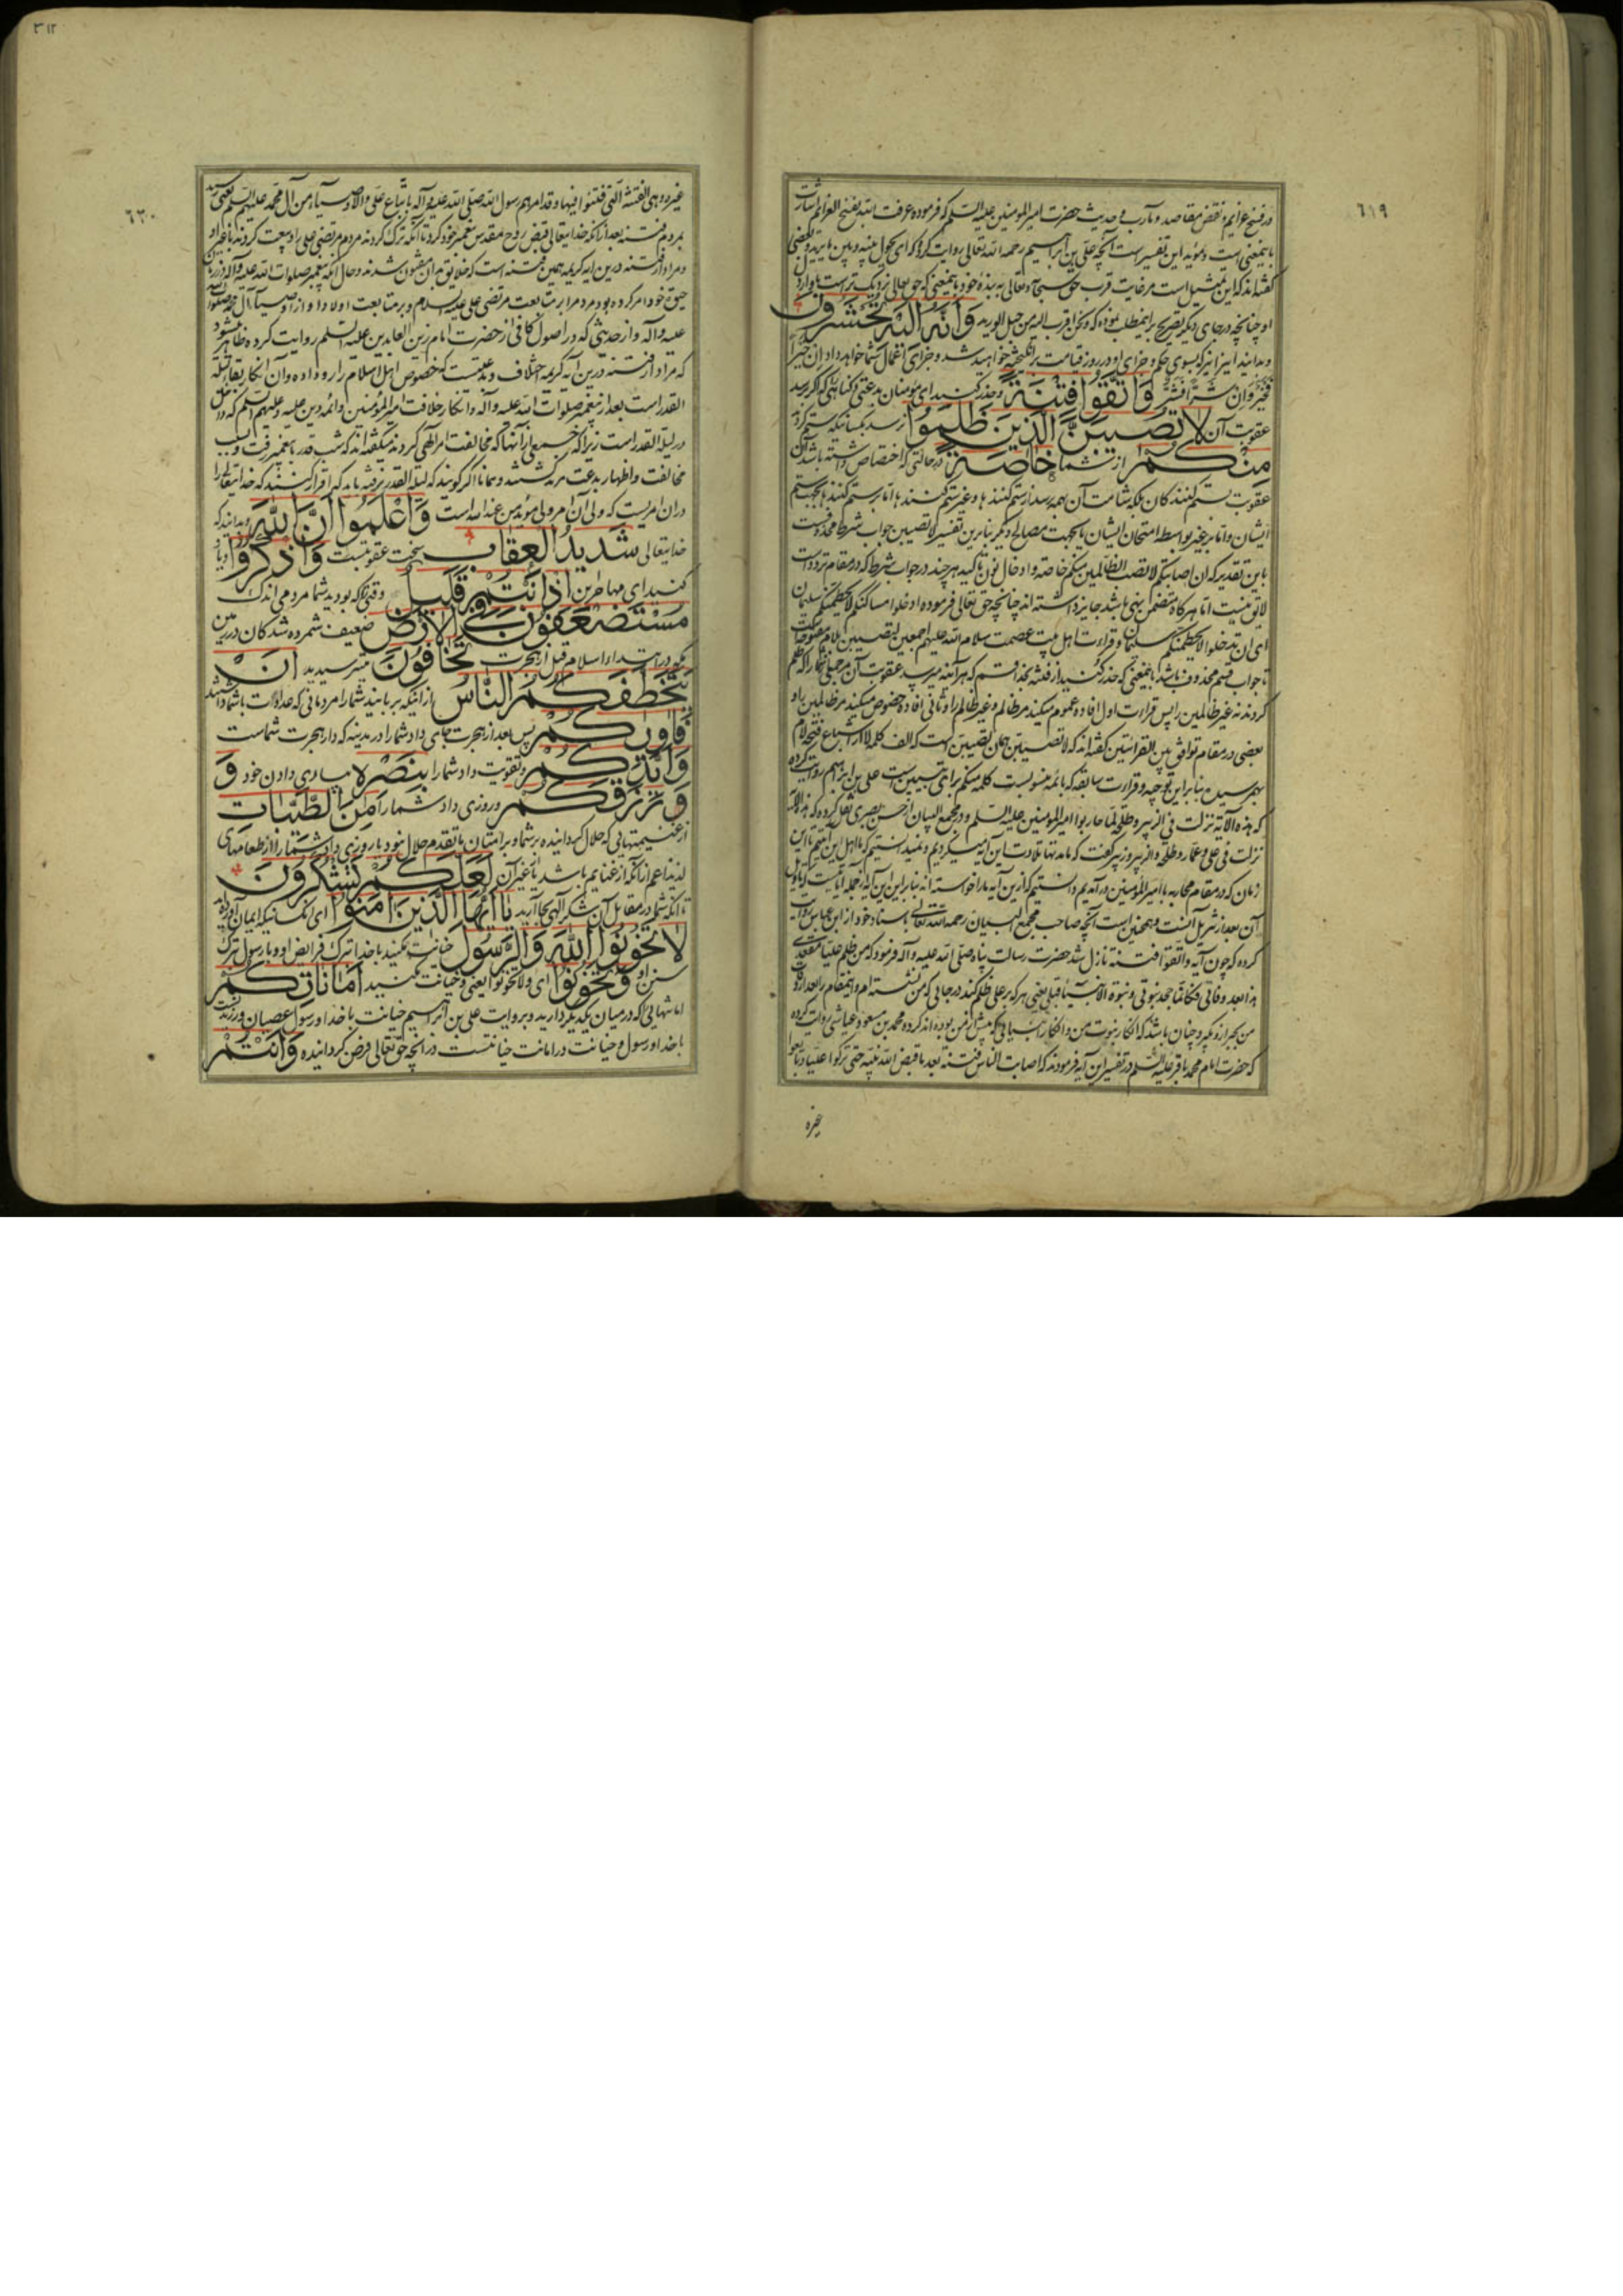 ٦١٩
در فسخ عزایم و نقض مقاصد و مآرب و حدیث حضرت امیر المومنین علیه السلم که فرموده عرفت الله بفسخ العزائم اشارت
باینمعنی است و مؤید این تفسیر است آنچه علی بن ابراهیم رحمه الله تعالی روایت کرده که ای یحول بینه و بین ما یرید و بعضی
گفته‌اند که این تمثیل است مر غایت قرب حق سبحانه و تعالی به بنده خود باینمعنی که حق تعالی نزدیک تر است باو از دل
او چنانچه در جای دیگر تصریح باینمطلب نموده که و نحن اقرب الیه من حبل الورید وَاَنَّهُ اِلَیْهِ تُحْشَرُونَ
و بدانید اینرا نیز که بسوی حکم و جزای او در روز قیامت برانگیخته خواهید شد و جزای اعمال شما خواهد داد اِن خیراً
فخیر وان شراً فشر وَاتَّقُوا فِتْنَةً و حذر کنید ای مؤمنان بدعتی و گناهی که اگر برسد
عقوبت آن لا تُصیبَنَّ الَّذینَ ظَلَمُوا نرسد بکسانیکه ستم کردند
مِنْکُمْ از شما خاصَّةً در حالتی که اختصاص داشته باشد آن
عقوبت بستم کنندکان بلکه شامت آن بهمه برسد از ستم کنندها و غیر ستم کنندها اما بر ستم کنندها بجهت ستم
ایشان و اما بر غیر بواسطه امتحان ایشان یا بجهت مصالح دیگر بنابرین تفسیر لا تصیبن جواب شرط محذوفست
باین تقدیر که ان اصابتکم لا تصب الظالمین منکم خاصة و ادخال نون تاکید هر چند در جواب شرط که در مقام تردد است
لایق نیست اما هرکاه متضمن نهی باشد جایز داشته‌اند چنانچه حق تعالی فرموده ادخلوا مساکنکم لا یحطمنکم سلیمان
ای ان تدخلوا لا یحطمنکم سلیمان و قراءت اهل بیت عصمت سلام الله علیهم اجمعین لتصیبن بلام مفتوحه است
تا جواب قسم محذوف باشد باینمعنی که حذر کنید از فتنه بخدا قسم که هر آینه میرسد عقوبت آن مر جمعی را که ظلم
کردند نه غیر ظالمین را پس قراءت اول افاده عموم میکند مر ظالم و غیر ظالم را و ثانی افاده خصوص میکند مر ظالمین را و
بعضی در مقام توافق بین القرائتین گفته‌اند که لا تصیبن همان لتصیبن است که الف کلمه لا از اشباع فتحه لام
بهم رسیده بنابراین توجیه و قراءت سابقه که بائمه منسوبست کلمه منکم برای تبیین است علی بن ابراهیم روایت کرده
که هذه الآیه نزلت فی الزبیر و طلحة لما حاربوا امیر المومنین علیه السلم و در مجمع البیان از حسن بصری نقل کرده که هذه الآیه
نزلت فی علی و عمار و طلحه و الزبیر و زبیر گفت که ما مدتها تلاوت این آیه میکردیم و نمیدانستیم که ما اهل این آیتیم تا این
زمان که در مقام محاربه با امیر المومنین در آمدیم دانستیم که ازین آیه ما را خواسته‌اند بنابراین این آیه از جمله آیاتیست که تاویل
آن بعد از تنزیل آنست و همچنین است آنچه صاحب مجمع البیان رحمه الله تعالی باسناد خود از ابن عباس روایت
کرده که چون آیه واتقوا فتنة نازل شد حضرت رسالت پناه صلی الله علیه وآله فرمود که من ظلم علیاً مقعدی
هذا بعد وفاتی فکانما جحد نبوتی و نبوة الانبیاء قبلی یعنی هر که بر علی ظلم کند در جایی که من نشسته‌ام و اینمقام را بعد از وفات
من بجبر ازو بگیرد چنان باشد که انکار نبوت من و انکار انبیایی که پیش از من بوده‌اند کرده محمد بن مسعود عیاشی روایت کرده
که حضرت امام محمد باقر علیه السلم در تفسیر این آیه فرمودند که اصابت الناس فتنة بعد ما قبض الله نبیه حتی ترکوا علیاً و بایعوا
غیره
٣١٢
٦٢٠
غیره و هی الفتنة التی فتنوا فیها و قد امرهم رسول الله صلی الله علیه وآله باتباع علی والاوصیاء من آل محمد علیهم السلم یعنی رسید
بمردم فتنه بعد از آنکه خدایتعالی قبض روح مقدس پیغمبر خود کرد تا آنکه ترک کردند مردم مرتضی علی را و بیعت کردند با غیر او
و مراد از فتنه درین آیه کریمه همین فتنه است که خلایق بآن مفتون شدند و حال آنکه پیغمبر صلوات الله علیه وآله در زمان
حیوة خود امر کرده بود مردم را بمتابعت مرتضی علی علیه السلام و بر متابعت اولاد او از اوصیاء آل محمد صلوات الله
علیه وآله و از حدیثی که در اصول کافی از حضرت امام زین العابدین علیه السلم روایت کرده ظاهر میشود
که مراد از فتنه درین آیه کریمه اختلاف و بدعتیست که خصوص اهل اسلام را رو داده و آن انکار بقاء لیلة
القدر است بعد از پیغمبر صلوات الله علیه وآله و انکار خلافت امیر المؤمنین و ائمه دین علیه و علیهم السلم که در
در لیلة القدر است زیرا که جمعی از آنها که مخالفت امر الهی کردند میگفته‌اند که شب قدر با پیغمبر رفت و بسبب
مخالفت و اظهار بدعت مرتد شدند و همانا اگر گویند که لیلة القدر نرفته باید که اقرار کنند که خدایتعالی را
در آن امریست که ولی آن امر ولی مؤید من عند الله است وَاعْلَمُوا اَنَّ اللّٰهَ و بدانید که
خدایتعالی شَدیدُ الْعِقابِ سخت عقوبتست وَاذْکُرُوا و یاد
کنید ای مهاجرین اِذْ اَنْتُمْ قَلیلٌ وقتی را که بودید شما مردمی اندک
مُسْتَضْعَفُونَ فِی الْاَرْضِ ضعیف شمرده شدکان در زمین
مکه در ابتداء اسلام قبل از هجرت تَخافُونَ میترسیدید اَنْ
یَتَخَطَّفَکُمُ النَّاسُ از آنیکه بربایند شما را مردمانی که عداوت باشما داشتند
فَاٰوٰیکُمْ پس بعد از هجرت جای داد شما را در مدینه که دار هجرت شماست
وَاَیَّدَکُمْ و تقویت داد شما را بِنَصْرِه بیاری دادن خود وَ
وَرَزَقَکُمْ و روزی داد شما را مِنَ الطَّیِّباتِ
از غنیمتهایی که حلال گردانیده بر شما و بر امتان ما تقدم حلال نبود یا روزی داد شما را از طعامهای
لذیذ اعم از آنکه از غنایم باشد یا غیر آن لَعَلَّکُمْ تَشْکُرُونَ
تا آنکه شما در مقابل آن شکر الهی بجا آرید یا اَیُّهَا الَّذینَ اٰمَنُوا ای آنکسانیکه ایمان آورده‌اید
لا تَخُونُوا اللّٰهَ وَالرَّسُولَ خیانت مکنید با خدا بترک فرایض او و با رسول بترک
سنن او وَتَخُونُوا ای و لا تخونوا یعنی و خیانت مکنید اَماناتِکُمْ
امانتهایی که در میان یکدیگر دارید و بروایت علی بن ابراهیم خیانت با خدا و رسول عصیان ورزیدنست
با خدا و رسول و خیانت در امانت خیانتست در آنچه حق تعالی فرض گردانیده وَاَنْتُمْ